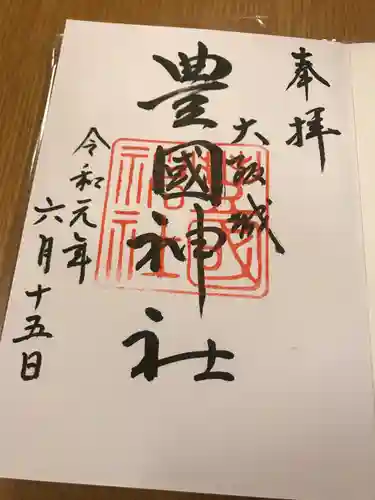 奉拝
大阪城
豊國神社
令和元年
六月十五日